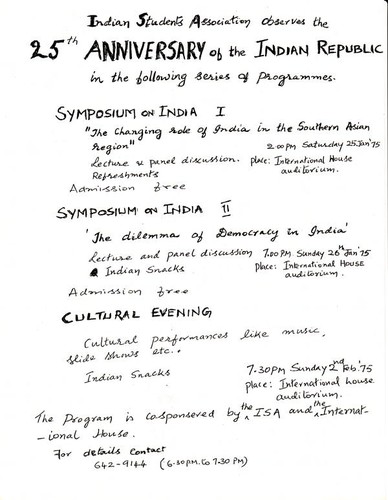 Indian Students Association observes the
25th ANNIVERSARY of the INDIAN REPUBLIC
in the following series of Programmes.
SYMPOSIUM ON INDIA I
"The Changing role of India in the Southern Asian
Region"
2.00 PM Saturday 25 Jan '75
Lecture & panel discussion.
place: International House
auditorium.
Refreshments
Admission free
SYMPOSIUM ON INDIA II
'The dilemma of Democracy in India'
Lecture and panel discussion
7.00 PM Sunday 26th Jan '75
Indian Snacks
Place: International HOUSE
auditorium.
Admission free
CULTURAL EVENING
Cultural performances like music,
slide shows etc..
Indian Snacks
7.30 PM Sunday 2nd Feb. '75
place: International house
auditorium.
The Program is cosponsered by the ISA and the Internat-
-ional House.
For details contact
642-9144 (6.30 PM. to 7.30 PM)